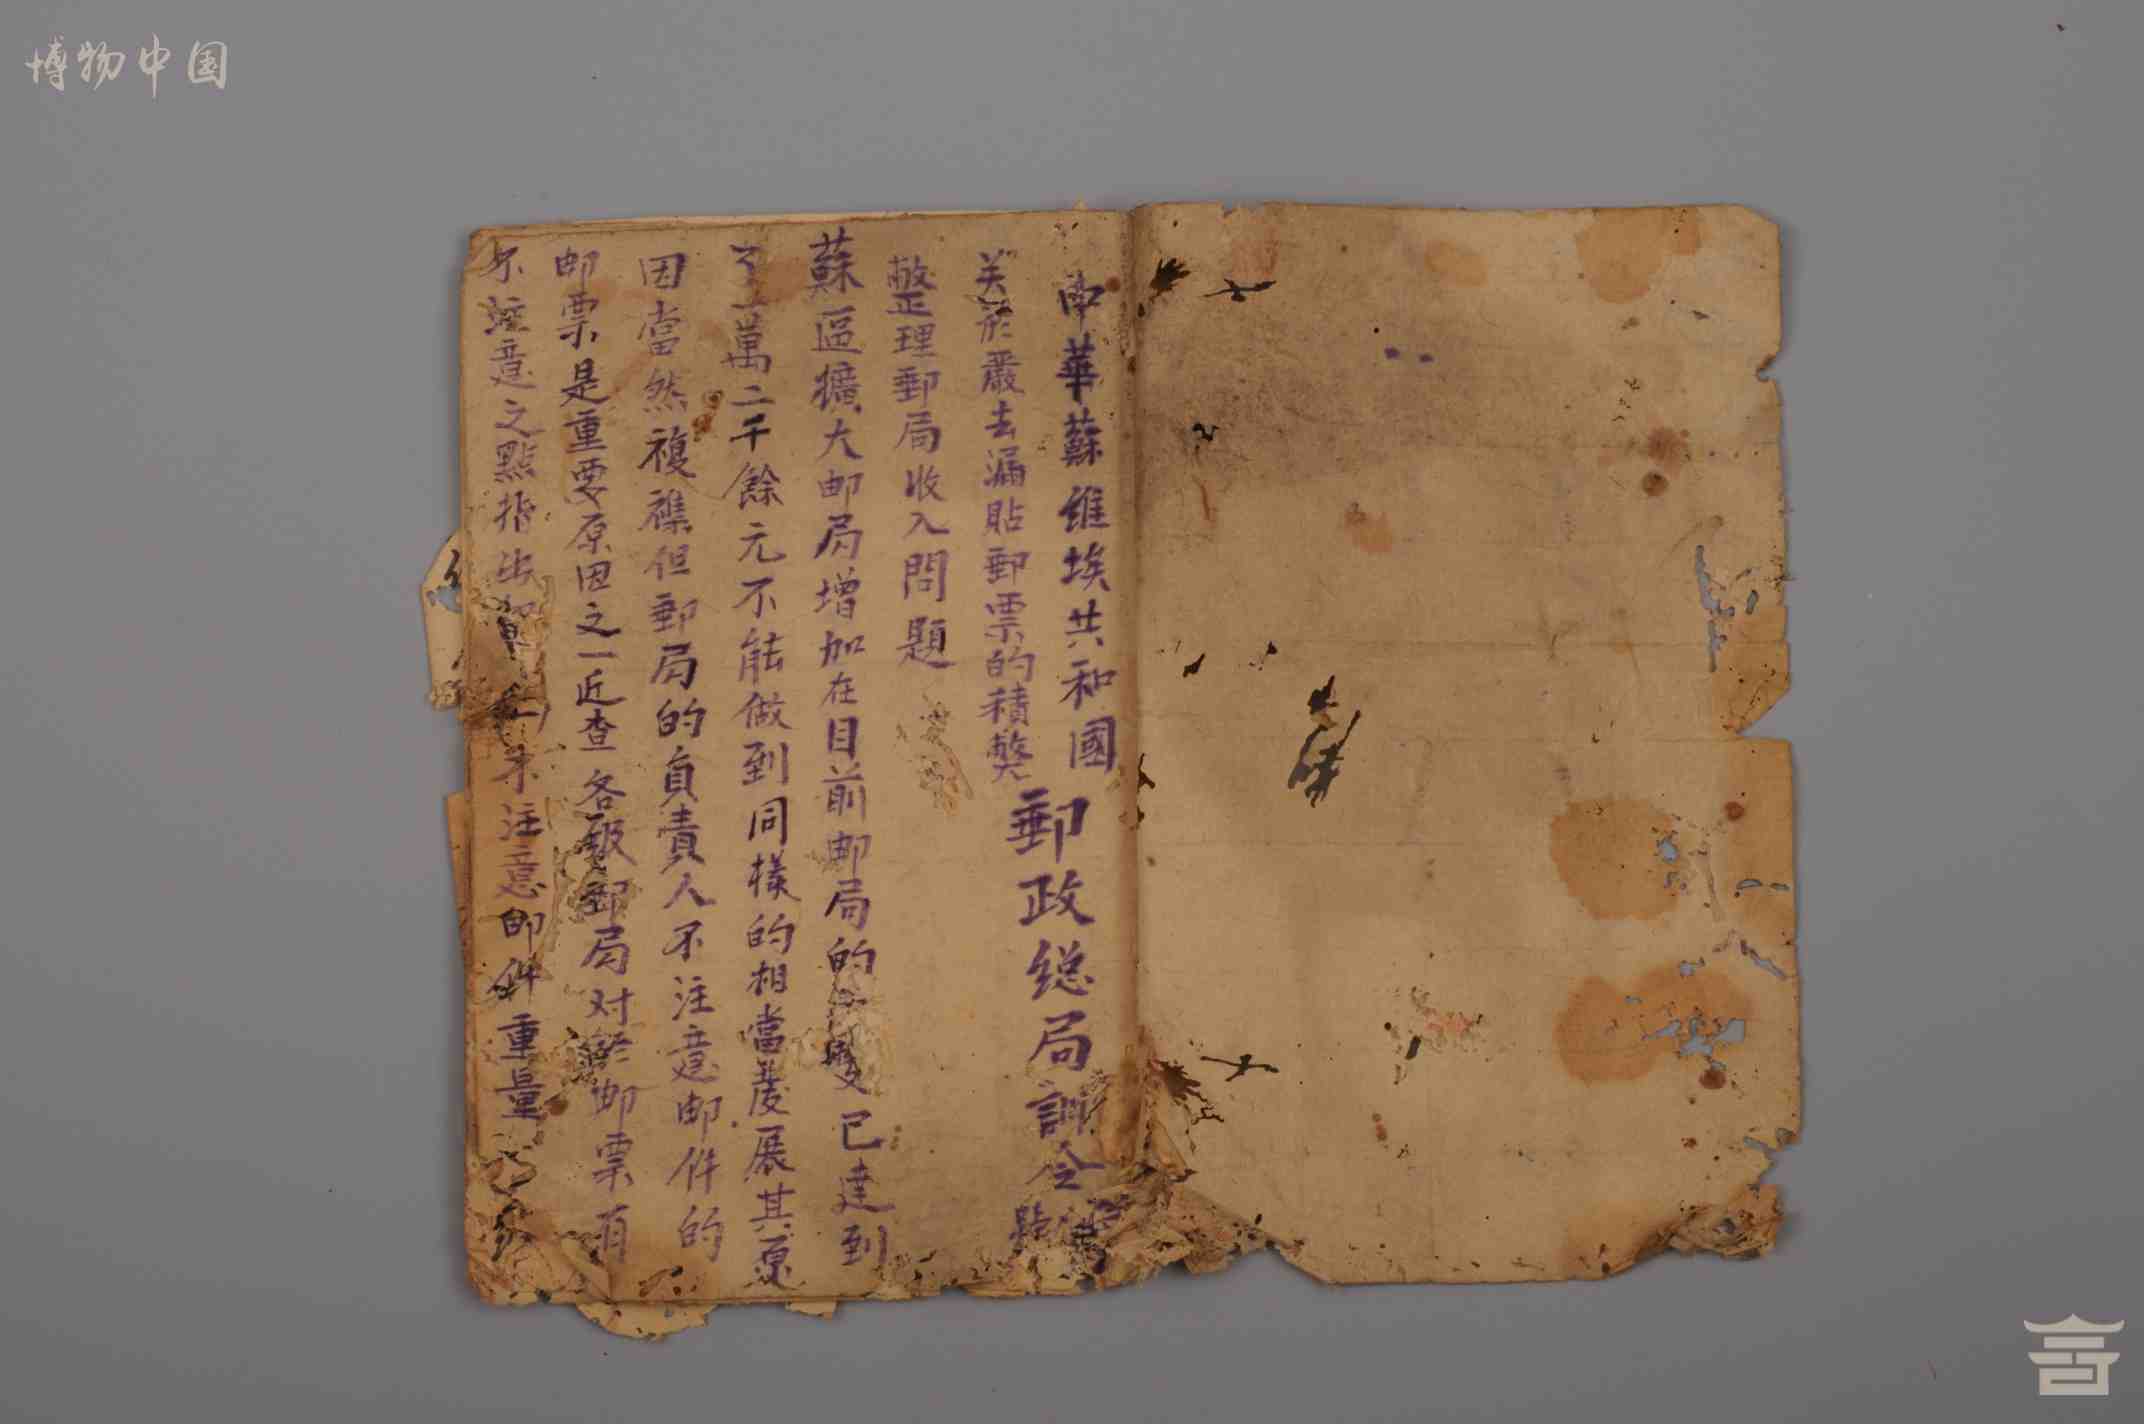 博物中国
中華蘇維埃共和國郵政総局訓令
关於嚴去漏貼郵票的積弊
整理郵局收入問題
蘇區擴大邮局增加在目前邮局的 已達到
了 萬二千餘元不能做到同樣的相當發展其原
因當然複襍但郵局的負責人不注意邮件的
邮票是重要原因之一近查各級郵局对於邮票有
不注意之點指出 不注意邮件重量